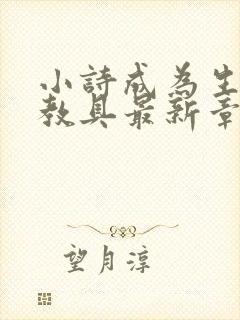 小詩成為生
教具最新章
望月淳